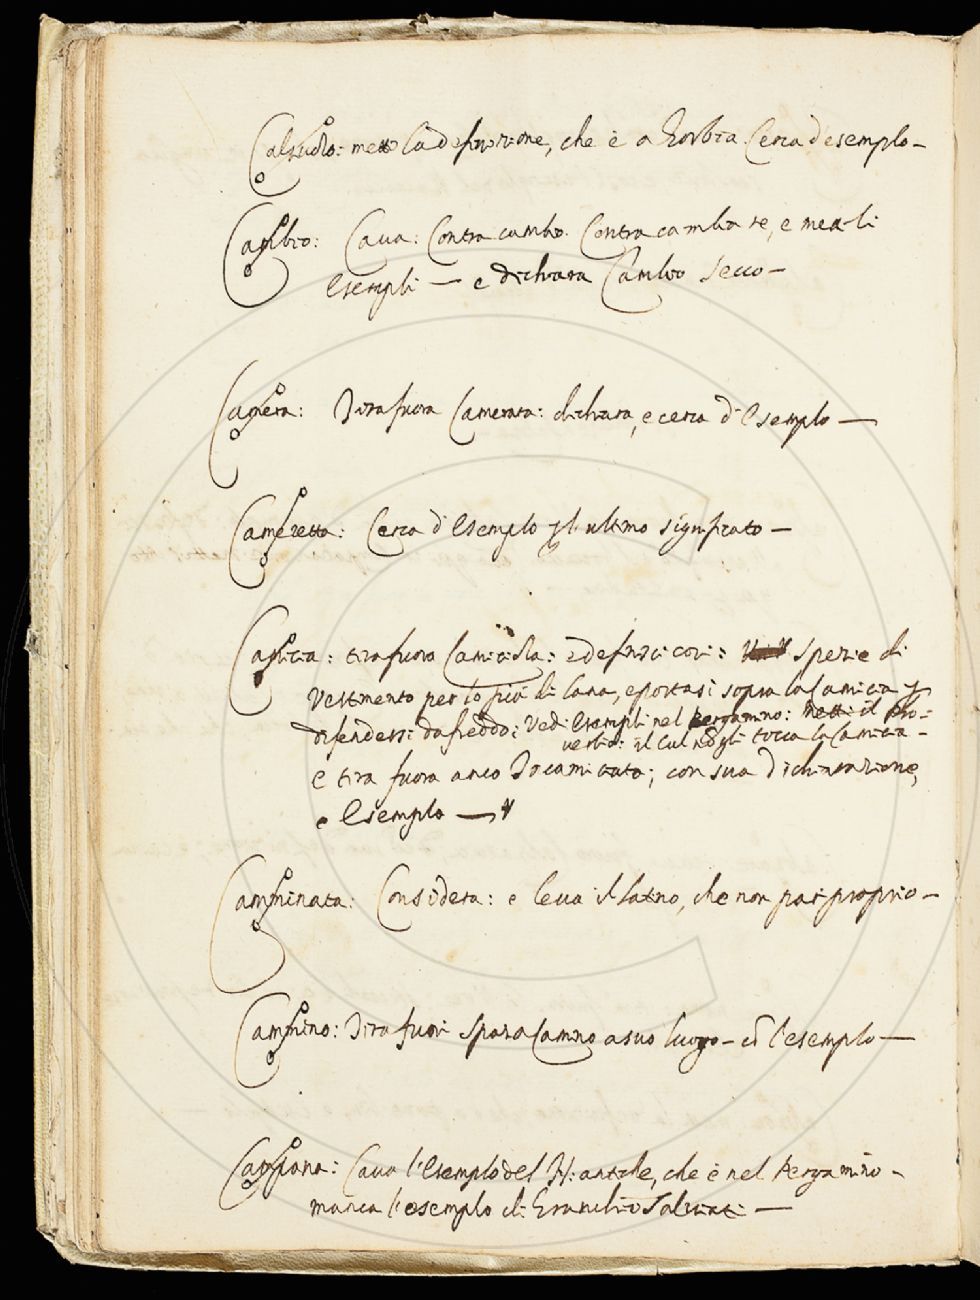 Calzuolo: metto la definizione, che è a Gorbia. Cerca d'esempio –
Cambio: Caua: Contra cambio. Contra cambiare, e metti li
Esempli — e dichiara Cambio secco –
Camera: Tira fuora Camerata: dichiara, e cerca d'Esemplo —
Cameretta: Cerca d'Esemplo p l'ultimo significato –
Camicia: tira fuora Camiciola: e definisci così: spezie di
Vestimento per lo più di lana, e portasi sopra la Camicia p
difendersi da freddo: Vedi Esempli nel pergamino: metti: il pro-
verbio: il Cul nō gli tocca la Camicia –
e tira fuora anco Incamiciata; con sua dichiarazione,
e Esemplo —
Camminata: Considera: e leua il latino, che non par proprio –
Cammino: Tira fuori Spazacamino a suo luogo – cō l'esemplo —
Campana: Caua l'Esemplo del N: antiche, che è nel Pergamino –
manca l'esemplo di Franchō Salviati —